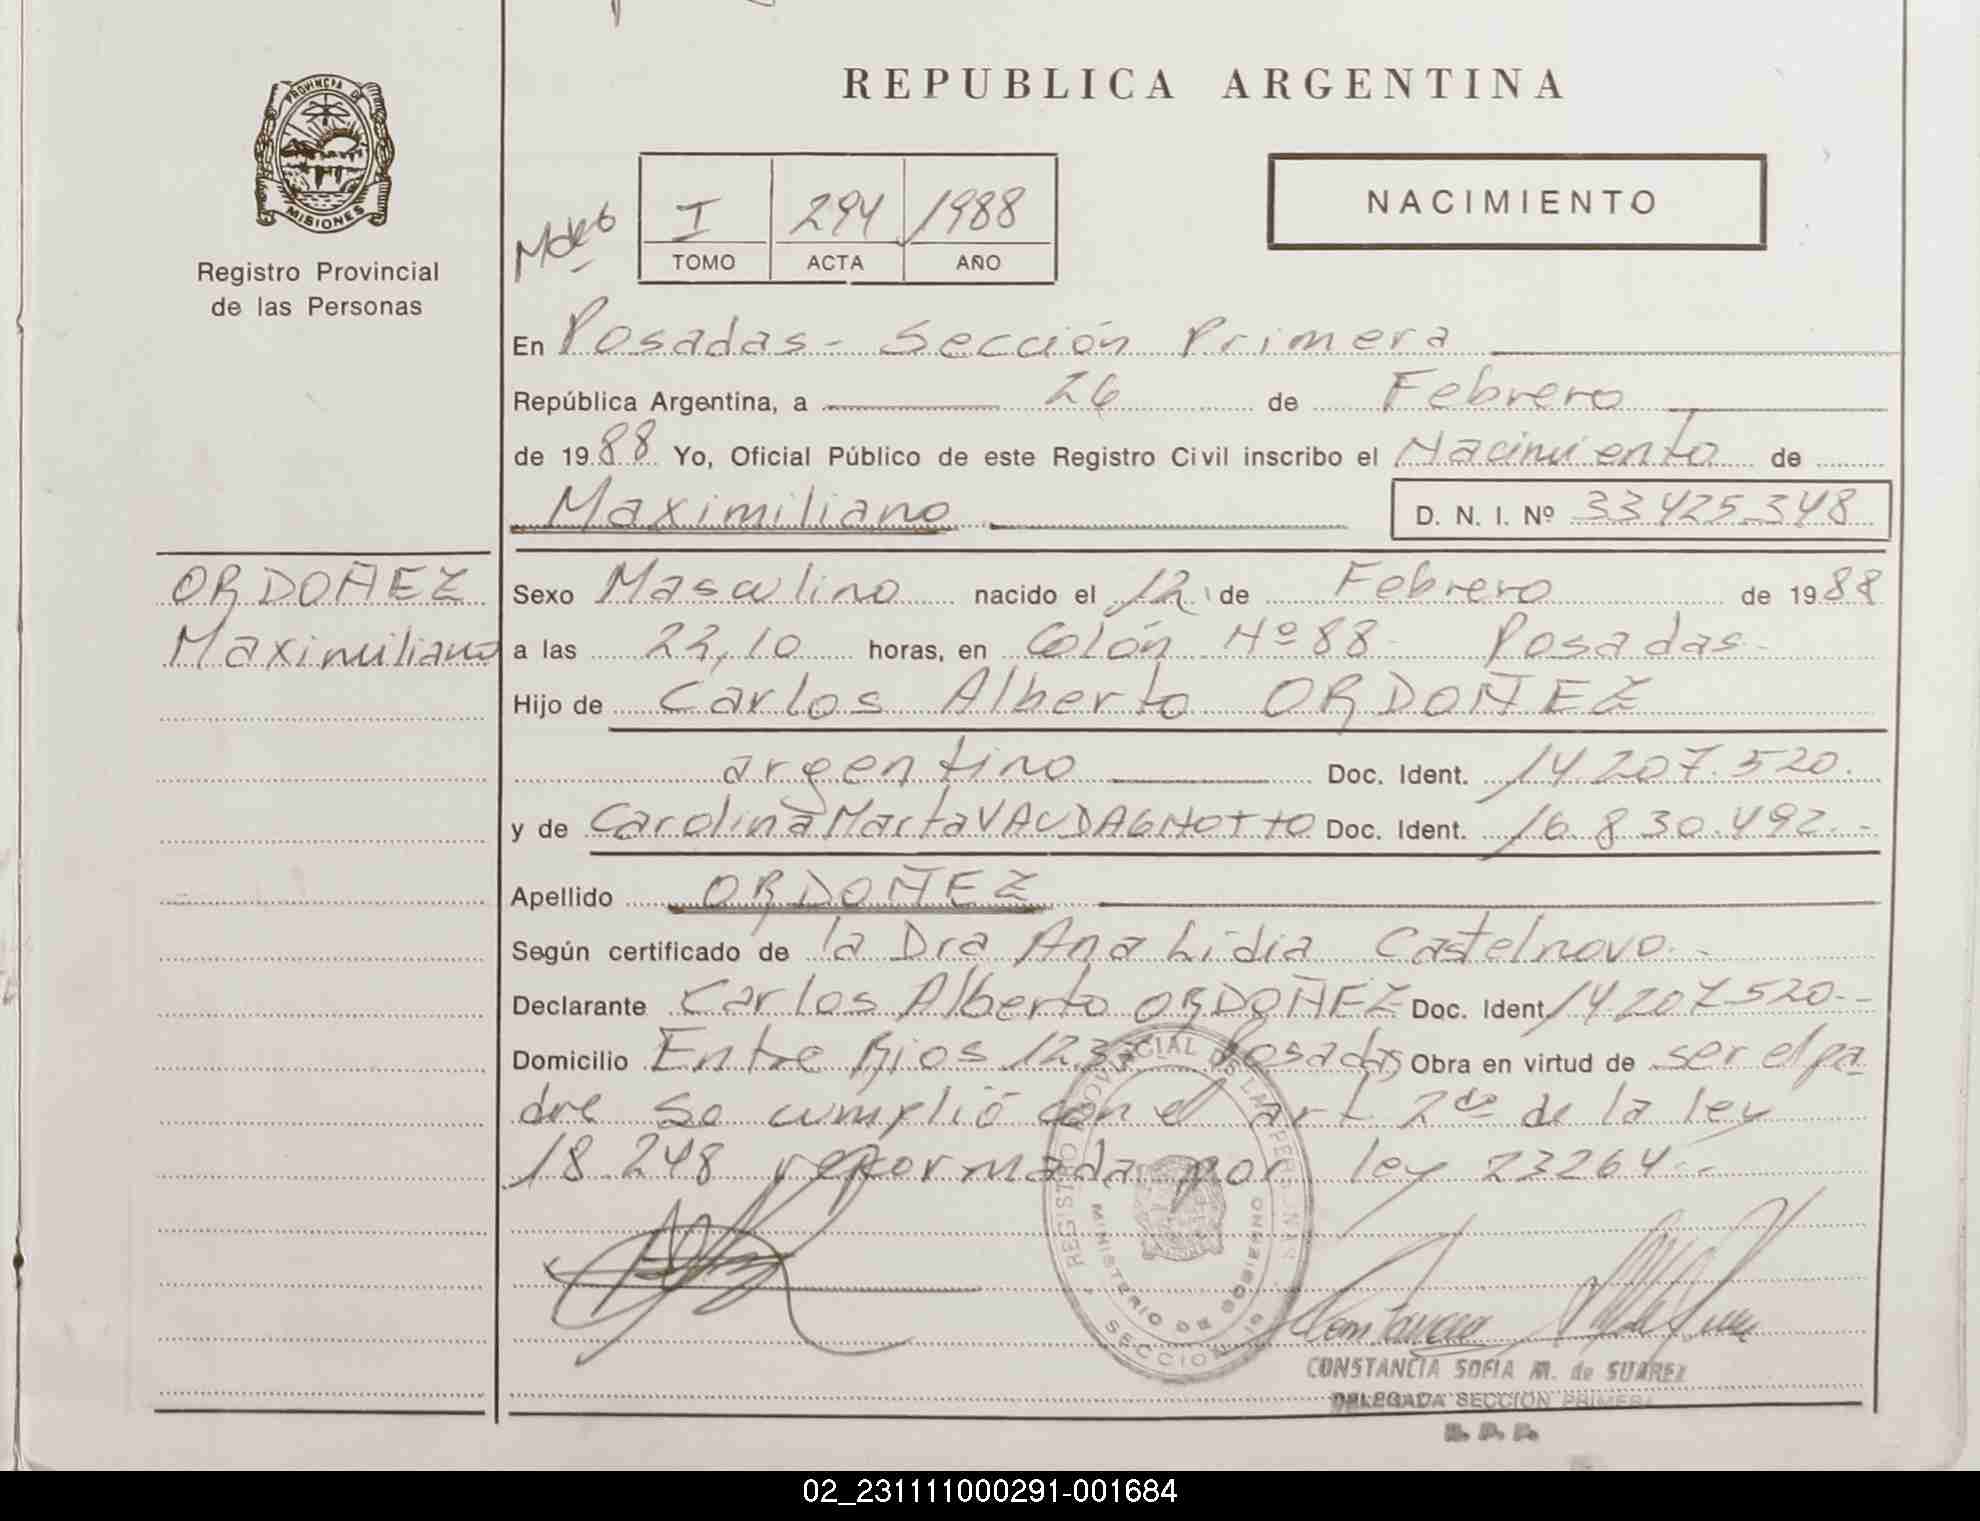 REPUBLICA ARGENTINA
PROVINCIA DE
MISIONES
Registro Provincial
de las Personas
I 294 1988
TOMO ACTA AÑO
NACIMIENTO
En Posadas - Sección Primera
República Argentina, a 26 de Febrero
de 1988 Yo, Oficial Público de este Registro Civil inscribo el Nacimiento de
Maximiliano D. N. I. Nº 33425348
ORDOÑEZ
Maximiliano
Sexo Masculino nacido el 12 de Febrero de 1988
a las 22,10 horas, en Colón Nº 88- Posadas-
Hijo de Carlos Alberto ORDOÑEZ
argentino Doc. Ident. 14.207.520.
y de Carolina Marta VAUDAGNOTTO Doc. Ident. 16.830.492.-
Apellido ORDOÑEZ
Según certificado de la Dra Ana Lidia Castelnovo.-
Declarante Carlos Alberto ORDOÑEZ Doc. Ident. 14.207.520.-
Domicilio Entre Rios Posadas Obra en virtud de ser el pa
dre se cumplió con el art 2do de la ley
18.248 reformada por ley 23264.-
REGISTRO PROVINCIAL DE LAS PERSONAS
MINISTERIO DE GOBIERNO
SECCION
CONSTANCIA SOFIA M. de SUAREZ
DELEGADA SECCION PRIMERA
R. P. P.
02_231111000291-001684